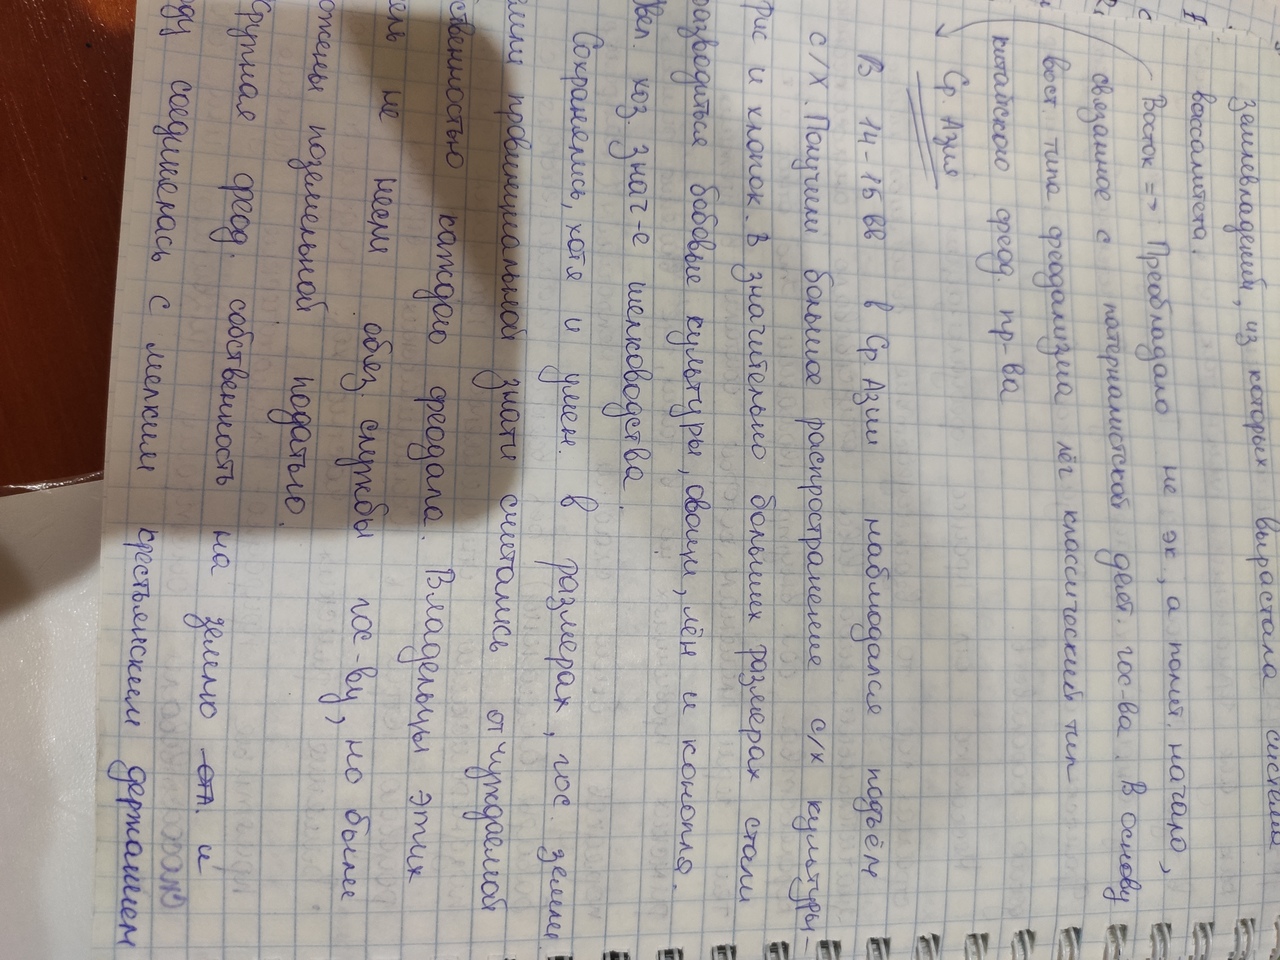 землевладений, из которых вырастала система
вассалитета.
Восток => Преобладало не эк., а полит. начало,
связанное с патерналистской деят. гос-ва. В основу
вост. типа феодализма лёг классический тип
китайского феод. пр-ва
Ср. Азия
В 14-15 вв в Ср. Азии наблюдался подъём
с/х. Получили большое распространение с/х культуры-
рис и хлопок. В значительно больших размерах стали
разводиться бобовые культуры, овощи, лён и конопля.
Увел. хоз. знач-е шелководства.
Сохранялись, хотя и умен. в размерах, гос. земли.
емли провинциальной знати считались отчуждаемой
ственностью каждого феодала. Владельцы этих
ель не несли обяз. службы гос-ву, но были
ожены поземельной податью.
Крупная феод. собственность на землю и
оду соединялась с мелким крестьянским держанием